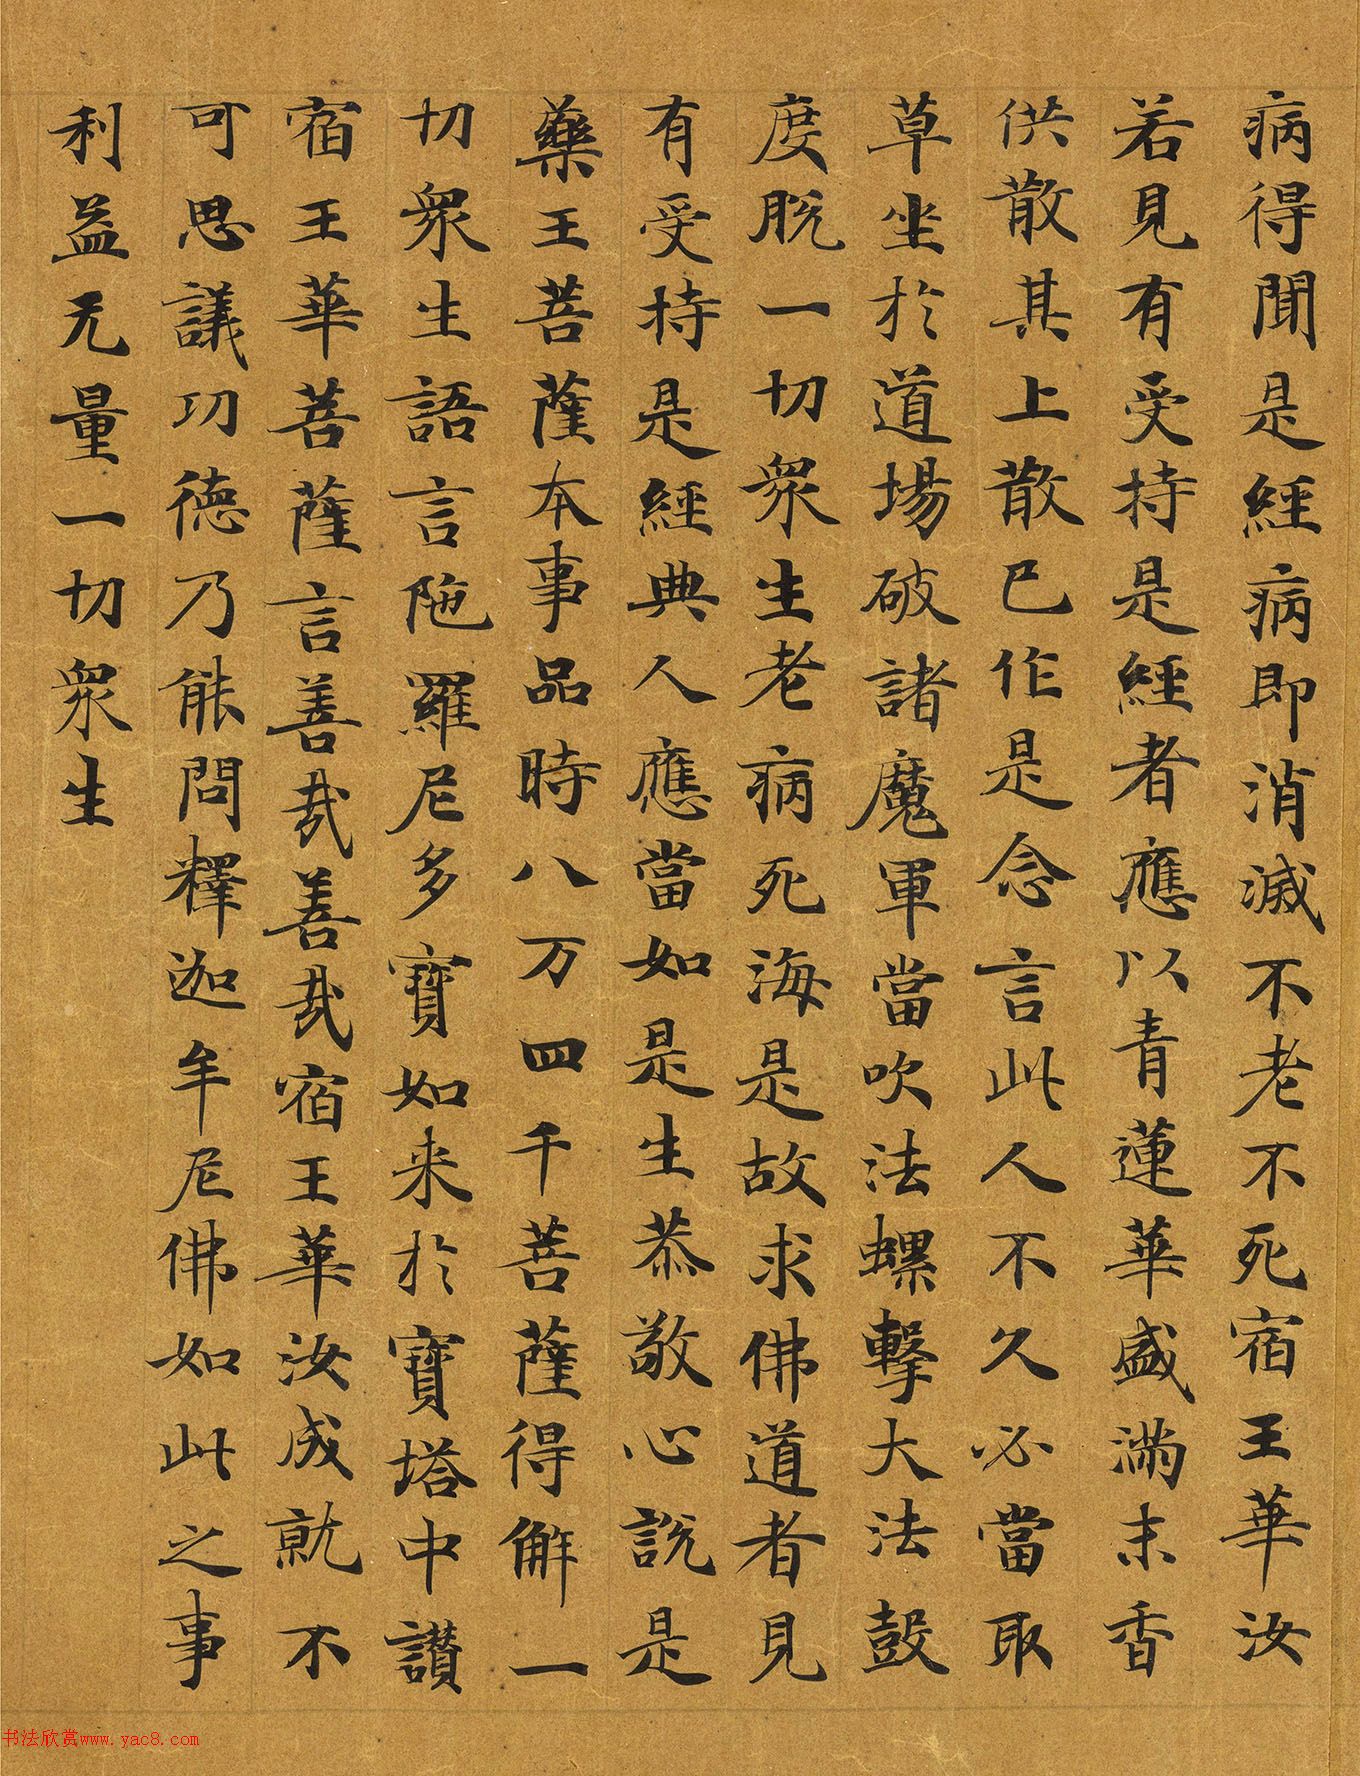 病得聞是經病即消滅不老不死宿王華汝
若見有受持是經者應以青蓮華盛滿末香
供散其上散已作是念言此人不久必當取
草坐於道場破諸魔軍當吹法螺擊大法鼓
度脫一切衆生老病死海是故求佛道者見
有受持是經典人應當如是生恭敬心說是
藥王菩薩本事品時八万四千菩薩得解一
切衆生語言陁羅尼多寶如来於寶塔中讃
宿王華菩薩言善哉善哉宿王華汝成就不
可思議功德乃能問釋迦牟尼佛如此之事
利益无量一切衆生
书法欣赏www.yac8.com